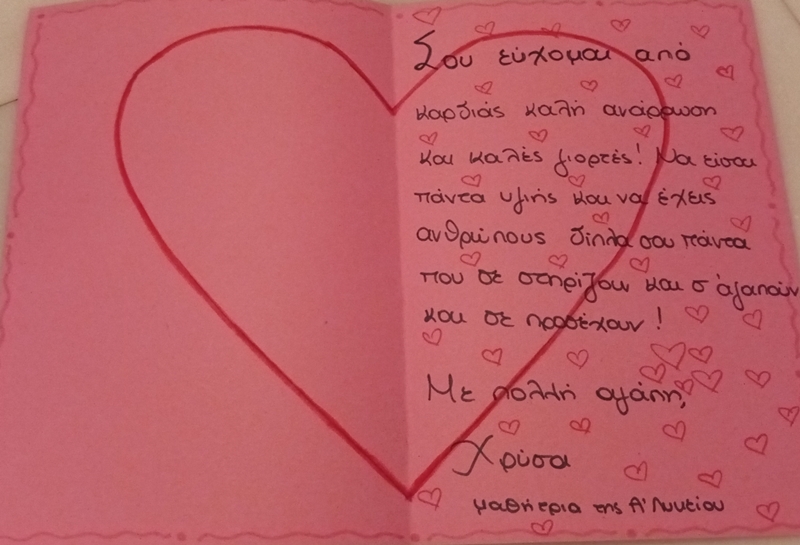 Σου εύχομαι από
καρδιάς καλή ανάρρωση
και καλές γιορτές! Να είσαι
πάντα υγιής και να έχεις
ανθρώπους δίπλα σου πάντα
που σε στηρίζουν και σ'αγαπούν
και σε προσέχουν!
Με πολλή αγάπη,
Χρύσα
μαθήτρια της Α' Λυκείου